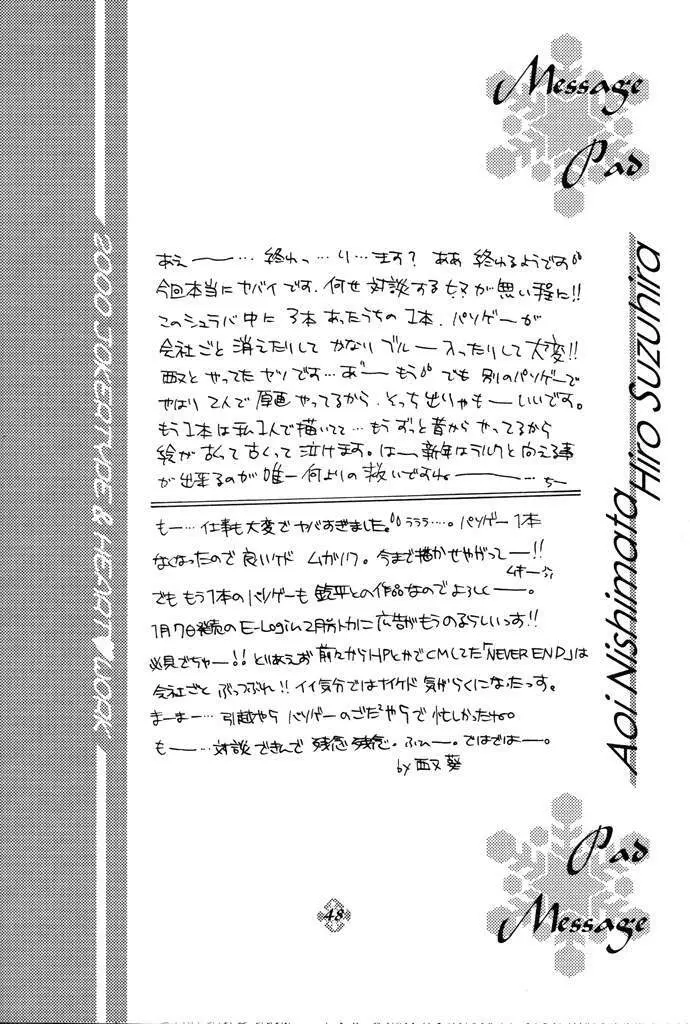 Message
Pad
あぇ――… 終わっ…り…ます? ああ 終わるようです
今回本当にヤバイです. 何せ 対談するヒマが無い程に!!
このシュラバ中に 3本あったうちの 1本. パソゲーが
会社ごと 消えたりして かなり ブルー 入ったりして 大変!!
西又と やってた ヤツです…あ゛ー もう でも 別のパソゲーで
やはり 2人で 原画 やってるから. そっち 出りゃも―いいです。
もう1本は 私1人で描いてて…もう ずっと 昔から やってるから
絵が 古くて 古くって 泣けます。は―、新年は ラルクと 向える事
が 出来るのが 唯一 何よりの 救いですね――――…
も―… 仕事も大変で ヤバすぎました。うううう…。パソゲー 1本
なくなったので 良いケド ムカツク。今まで描かせやがって―!!
ムキー
でも もう1本の パソゲーも 鈴平との作品なので よろしく―。
1月7日発売の E-Login 2月号トカに 広告が もうのるらしいっす!!
必見でちゃ―!! とりあえず 前々からHPとかでCMしてた「NEVER END」は
会社ごと ぶっつぶれ!! イイ気分では ナイケド 気がらくに なたっす。
ま―ま―… 引越やら パソゲーの ごたごたやらで 忙しかったね
も――… 対談 できんで 残念 残念。ふひ―。ではでは―。
by 西又 葵
Hiro Suzuhira
Aoi Nishimata
2000 JOKERTYPE & HEART♥WORK
48
Pad
Message